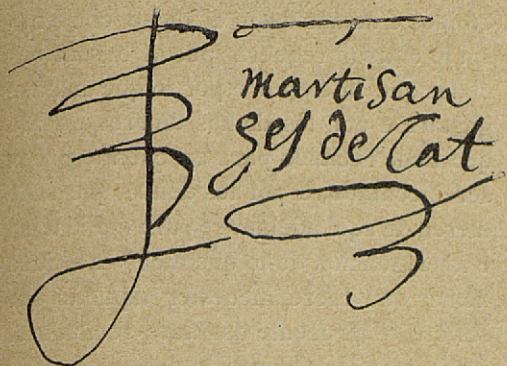 martisan
ges de Cat